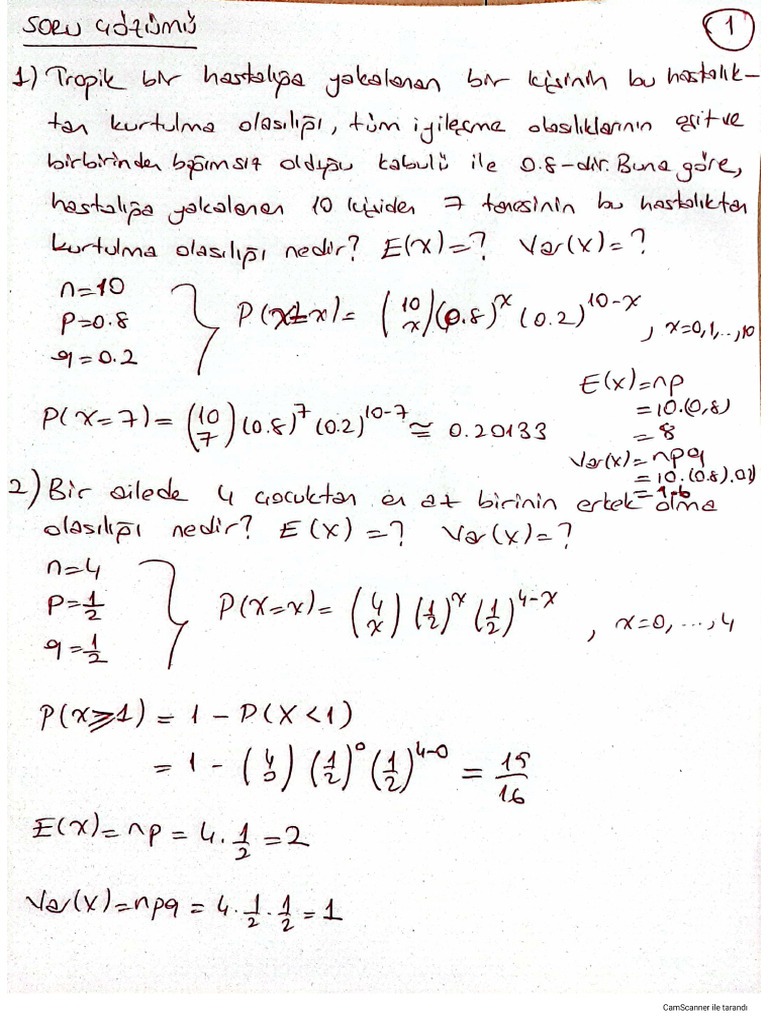 SORU ÇÖZÜMÜ
1
1) Tropik bir hastalığa yakalanan bir kişinin bu hastalık-
tan kurtulma olasılığı, tüm iyileşme olasılıklarının eşit ve
birbirinden bağımsız olduğu kabulü ile 0.8-dir. Buna göre,
hastalığa yakalanan 10 kişiden 7 tanesinin bu hastalıktan
kurtulma olasılığı nedir? E(X)=? Var(X)=?
n=10
p=0.8
q=0.2
P(X=x)= (10 x)(0.8)^x (0.2)^10-x , x=0,1,..,10
P(X=7)= (10 7)(0.8)^7 (0.2)^10-7 ≅ 0.20133
E(X)=np
=10.(0,8)
=8
Var(X)=npq
=10.(0.8).0,2
=1.6
2) Bir ailede 4 çocuktan en az birinin erkek olma
olasılığı nedir? E(X)=? Var(X)=?
n=4
p=1/2
q=1/2
P(X=x)= (4 x) (1/2)^x (1/2)^4-x , x=0,...,4
P(X⩾1) = 1 - P(X<1)
= 1 - (4 0) (1/2)^0 (1/2)^4-0 = 15/16
E(X)=np = 4.1/2 = 2
Var(X)=npq = 4.1/2.1/2 = 1
CamScanner ile tarandı